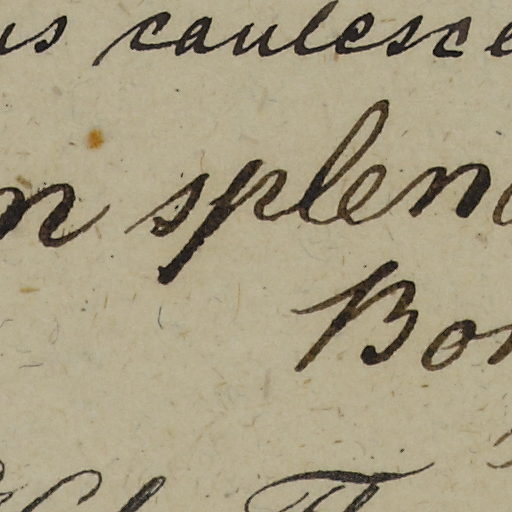 us caulesce
n splend
Bon